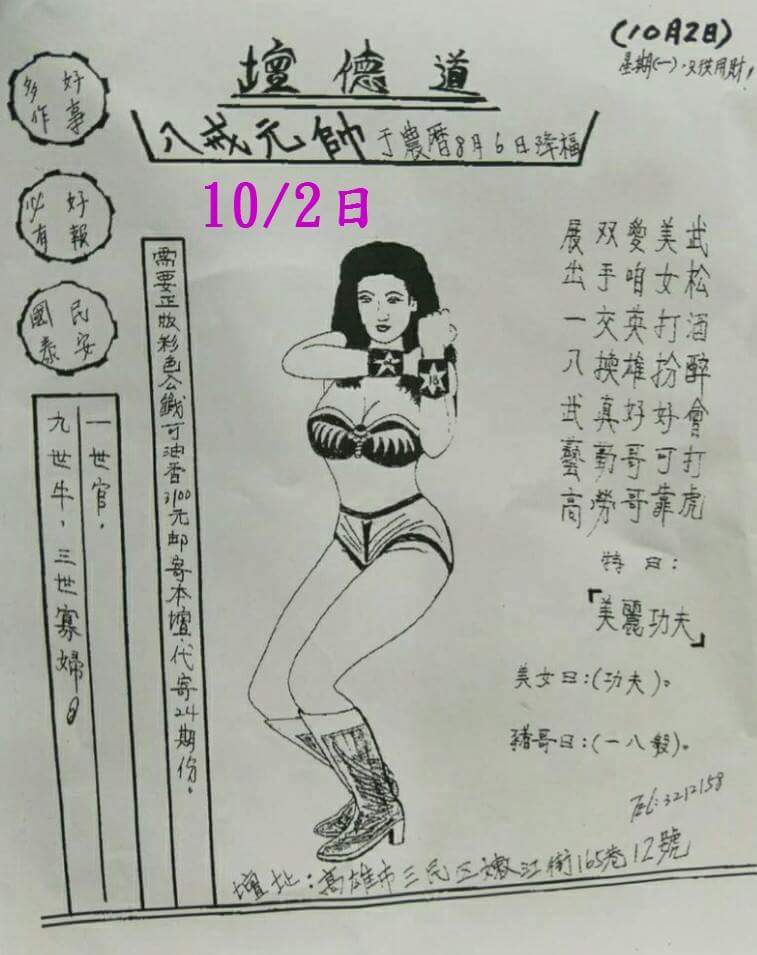 (10月2日)
星期(一)．只供用財！
壇德道
八戒元帥 于農曆8月6日降福
10/2日
好事
多作
好報
以有
民安
國泰
武松酒醉會打虎
美女打扮好可靠
愛咱英雄好哥哥
双手交換真勤勞
展出一八武藝高
特曰：
「美麗功夫」
美女曰：(功夫)。
豬哥曰：(一八般)。
需要正版彩色公籤可油香3100元郵寄本壇．代寄24期份。
一世官，
九世牛，三世寡婦。
Tel：3212158
壇址：高雄市三民區嫩江街165巷12號